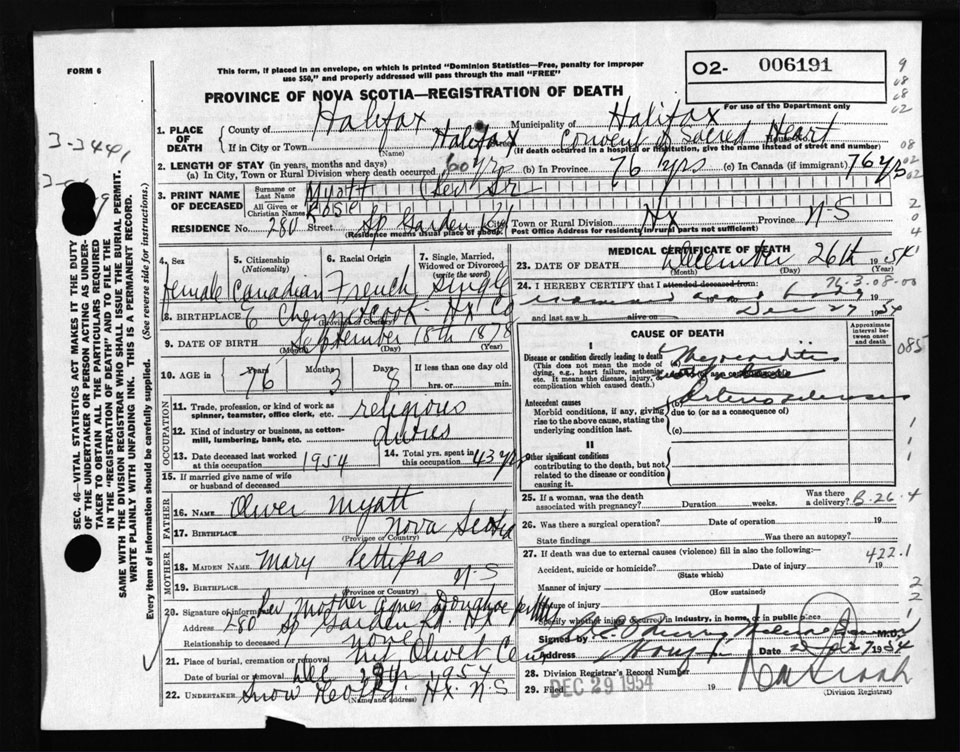 FORM 6
This form, if placed in an envelope, on which is printed "Dominion Statistics—Free, penalty for improper use $50," and properly addressed will pass through the mail "FREE"
02- 006191
For use of the Department only
PROVINCE OF NOVA SCOTIA—REGISTRATION OF DEATH
1. PLACE OF DEATH
County of Halifax Municipality of Halifax
If in City or Town Halifax Convent of Sacred Heart
(Name) (If death occurred in a hospital or institution, give the name instead of street and number)
2. LENGTH OF STAY (in years, months and days)
(a) In City, Town or Rural Division where death occurred 60 yrs (b) In Province 76 yrs (c) In Canada (if immigrant) 76 yrs
3. PRINT NAME OF DECEASED
Surname or Last Name Myatt (Rev Sr
All Given or Christian Names Rose
RESIDENCE No. 280 Street Sp Garden Rd City Town or Rural Division Hx Province N-S
(Residence means usual place of abode) Post Office Address for residents in rural parts not sufficient)
4. Sex
5. Citizenship (Nationality)
6. Racial Origin
7. Single, Married, Widowed or Divorced (write the word)
female Canadian French Single
8. BIRTHPLACE E Chezzetcook Hx Co
(Province or Country)
9. DATE OF BIRTH September 18th 1878
(Month) (Day) (Year)
10. AGE in Years Months Days If less than one day
76 3 8 hrs. or min.
OCCUPATION
11. Trade, profession, or kind of work as spinner, teamster, office clerk, etc. religious
12. Kind of industry or business, as cotton-mill, lumbering, bank, etc. duties
13. Date deceased last worked at this occupation 1954
14. Total yrs. spent in this occupation 43 yrs
15. If married give name of wife or husband of deceased
FATHER
16. NAME Oliver Myatt
17. BIRTHPLACE Nova Scotia
(Province or Country)
MOTHER
18. MAIDEN NAME Mary Pettipas
19. BIRTHPLACE N-S
(Province or Country)
20. Signature of informant Rev Mother Agnes Donahoe
Address 280 Sp Garden Rd. Hx
Relationship to deceased none
21. Place of burial, cremation or removal Mt Olivet Cem
Date of burial or removal Dec 29th 1954
22. UNDERTAKER Snow & Co Ltd. Hx. N-S
(Name and address)
MEDICAL CERTIFICATE OF DEATH
23. DATE OF DEATH December 26th 1954
(Month) (Day) (Year)
24. I HEREBY CERTIFY that I attended deceased from:
76-3-08-00
and last saw h alive on Dec 27 1954
CAUSE OF DEATH
Approximate interval between onset and death
I
Disease or condition directly leading to death
(This does not mean the mode of dying, e.g., heart failure, asthenia etc. It means the disease, injury, or complication which caused death.)
Myocarditis
085
Antecedent causes
Morbid conditions, if any, giving rise to the above cause, stating the underlying condition last.
(b) Arteriosclerosis
due to (or as a consequence of)
(c)
II
Other significant conditions
contributing to the death, but not related to the disease or condition causing it.
25. If a woman, was the death associated with pregnancy? Duration weeks. Was there a delivery? B-26-4
26. Was there a surgical operation? Date of operation 19
State findings Was there an autopsy?
27. If death was due to external causes (violence) fill in also the following:—
422.1
Accident, suicide or homicide? Date of injury 19
(State which)
Manner of injury
(How sustained)
Nature of injury
Specify whether injury occurred in industry, in home, or in public place
Signed by M.D.
Address Date Dec 27 1954
28. Division Registrar's Record Number
29. Filed DEC 29 1954 19
(Division Registrar)
SEC. 46—VITAL STATISTICS ACT MAKES IT THE DUTY OF THE UNDERTAKER OR PERSON ACTING AS UNDERTAKER TO OBTAIN ALL THE PARTICULARS REQUIRED IN THE "REGISTRATION OF DEATH" AND TO FILE THE SAME WITH THE DIVISION REGISTRAR WHO SHALL ISSUE THE BURIAL PERMIT.
WRITE PLAINLY WITH UNFADING INK. THIS IS A PERMANENT RECORD.
Every item of information should be carefully supplied. (See reverse side for instructions.)